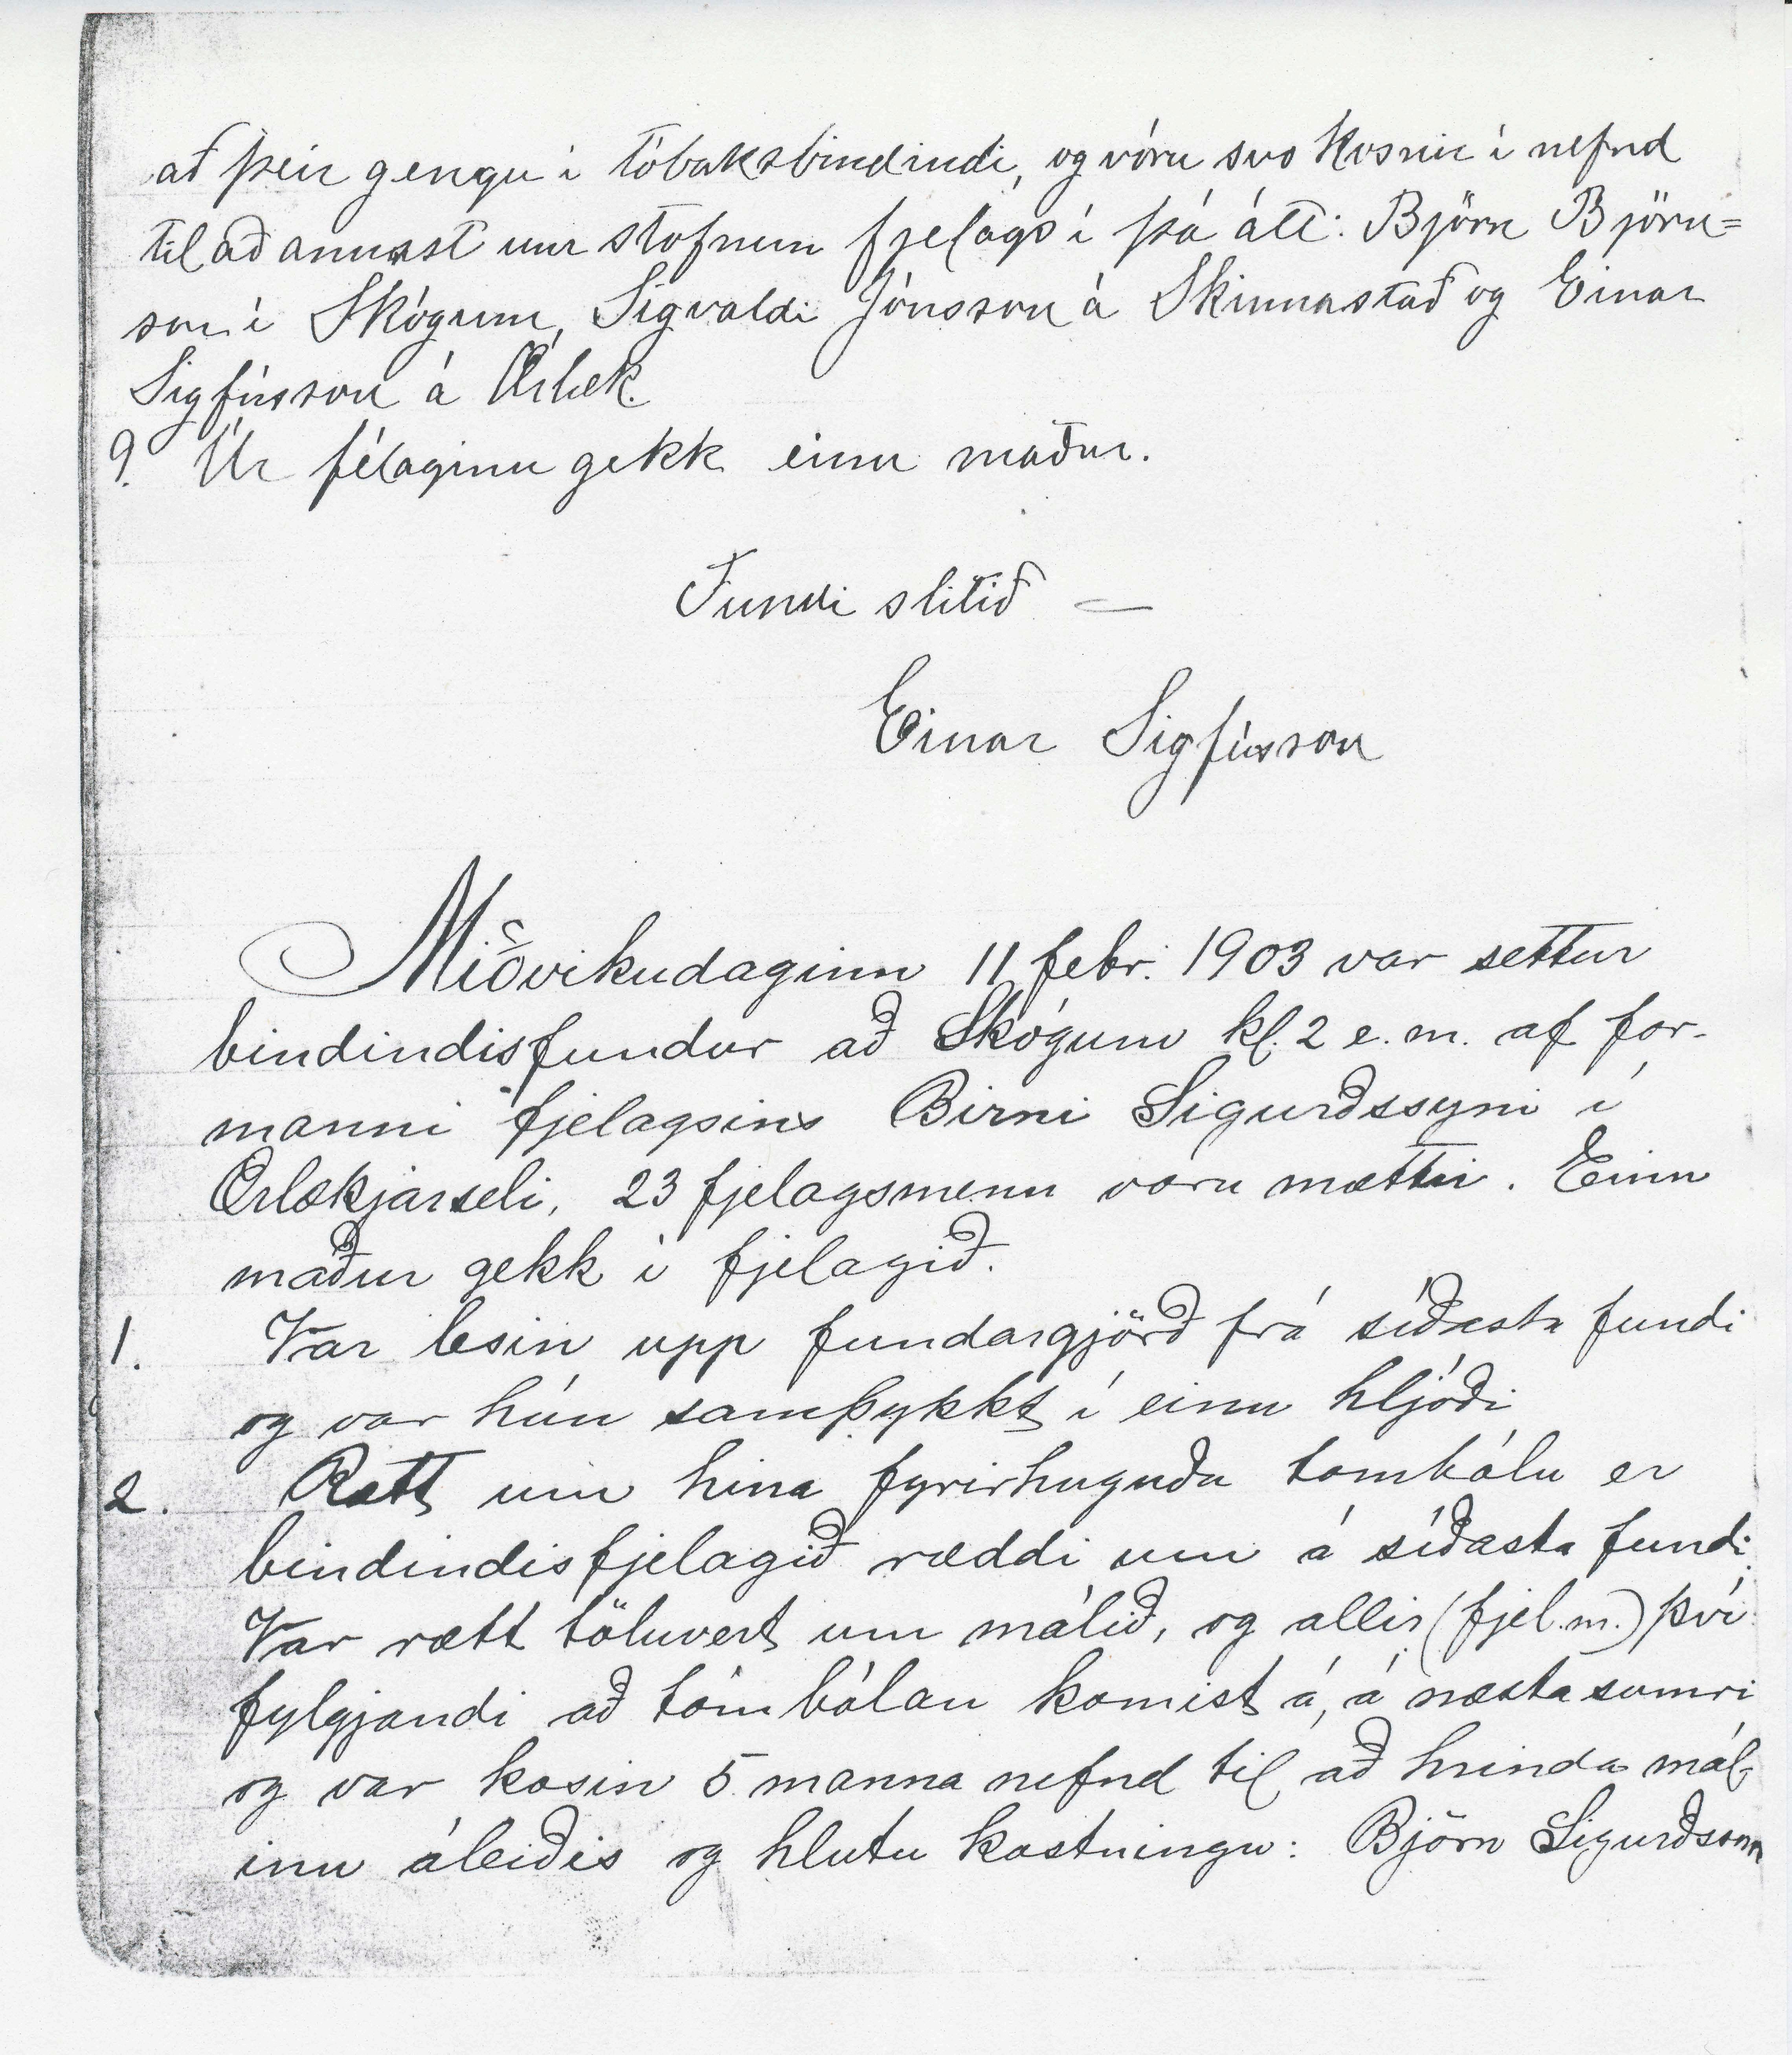 að þeir gengu í tóbaksbindindi, og vóru svo kosnir í nefnd
til að annast um stofnun fjelags í þá átt: Björn Björn=
son í Skógum, Sigvaldi Jónsson á Skinnastað og Einar
Sigfússon á Ærlæk.
9. Úr félaginu gekk einn maður.
Fundi slitið —
Einar Sigfússon
Miðvikudaginn 11 febr. 1903 var settur
bindindisfundur að Skógum kl. 2 e. m. af for-
manni fjelagsins Birni Sigurðssyni í
Ærlækjarseli, 23 fjelagsmenn voru mættir. Einn
maður gekk í fjelagið.
1. Var lesin upp fundargjörð frá síðasta fundi
og var hún samþykkt í einu hljóði
2. Rætt um hina fyrirhuguðu tombólu er
bindindisfjelagið ræddi um á síðasta fundi.
Var rætt töluvert um málið, og allir (fjel.m.) því
fylgjandi að tómbólan komist á, á næsta sumri
og var kosin 5 manna nefnd til að hrinda mál-
inu áleiðis og hlutu kostningu: Björn Sigurðsson